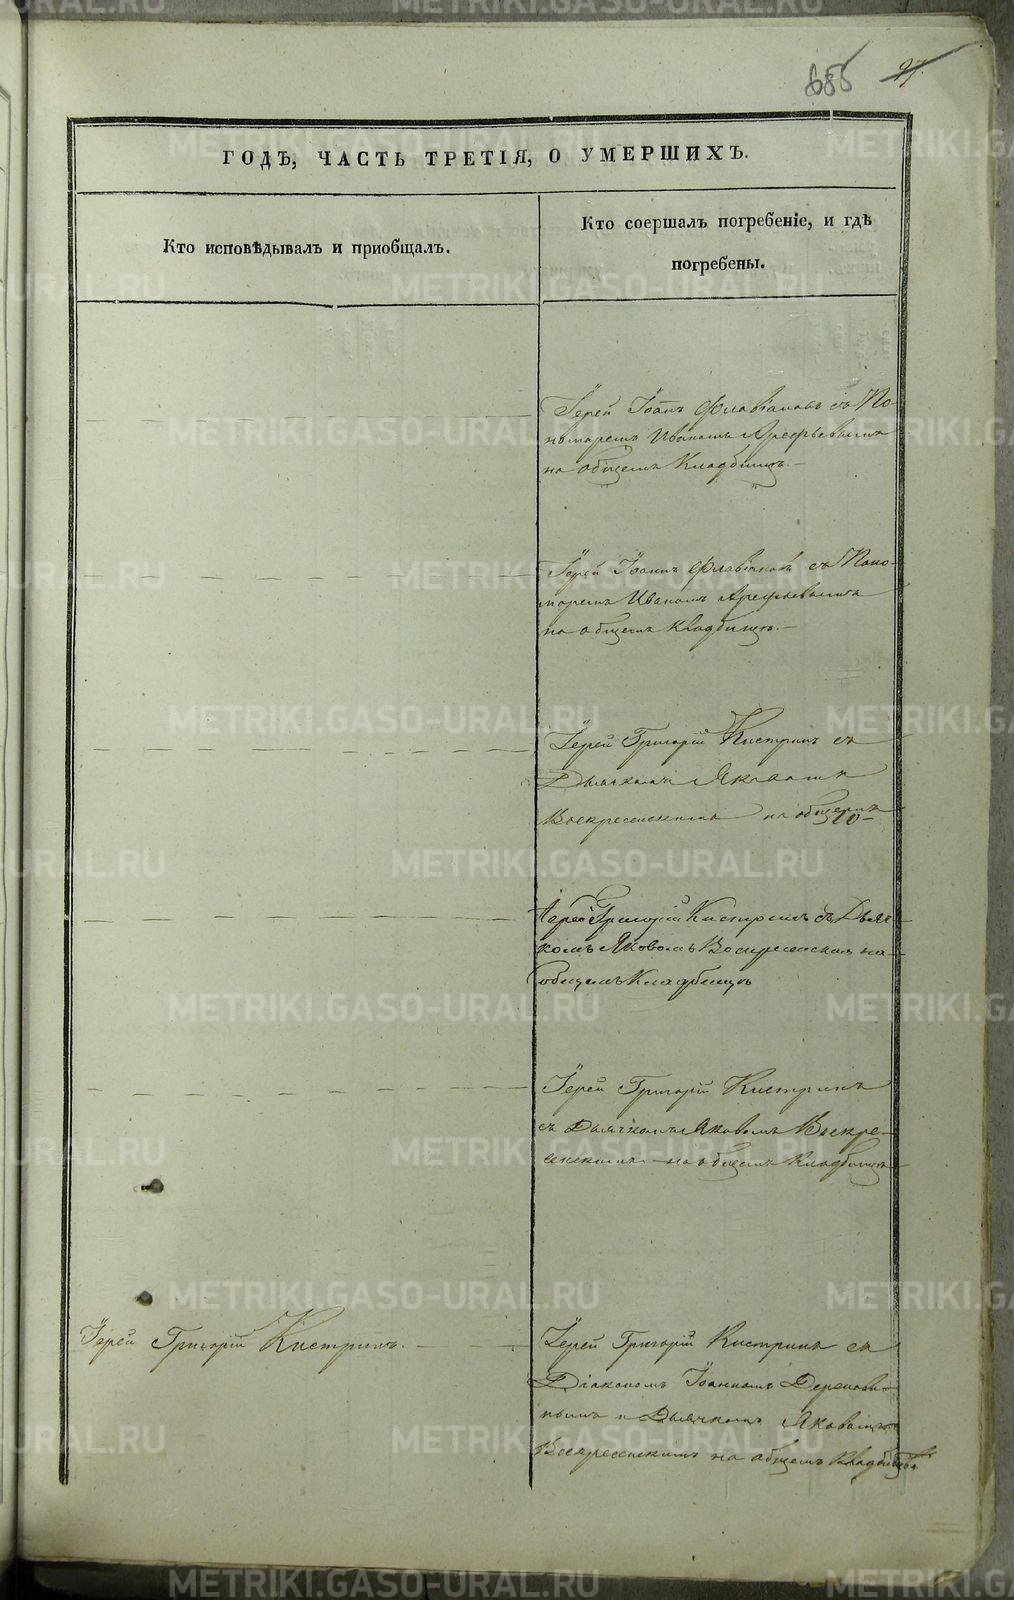 685 27.
ГОДѢ, ЧАСТЬ ТРЕТІЯ, О УМЕРШИХЪ.
Кто исповѣдывалъ и приобщалъ.
Кто соершалъ погребеніе, и гдѣ
погребены.
Іерей Іоаннъ Флавіановъ съ По-
номаремъ Иваномъ Арефьевымъ
на общемъ Кладбищѣ.
Іерей Іоаннъ Флавіановъ съ Поно-
маремъ Иваномъ Арефьевымъ
на общемъ Кладбищѣ.
Іерей Григорій Кистринъ съ
Дьячкомъ Яковомъ
Воскресенскимъ на общемъ
Іерей Григорій Кистринъ съ Дьяч-
комъ Яковомъ Воскресенскимъ на
общемъ Кладбищѣ
Іерей Григорій Кистринъ
съ Дьячкомъ Яковомъ Воскре-
сенскимъ на общемъ Кладбищѣ
Іерей Григорій Кистринъ.
Іерей Григорій Кистринъ съ
Діакономъ Іоанномъ
и Дьячкомъ Яковомъ
Воскресенскимъ на общемъ Кладбищѣ.
METRIKI.GASO-URAL.RU